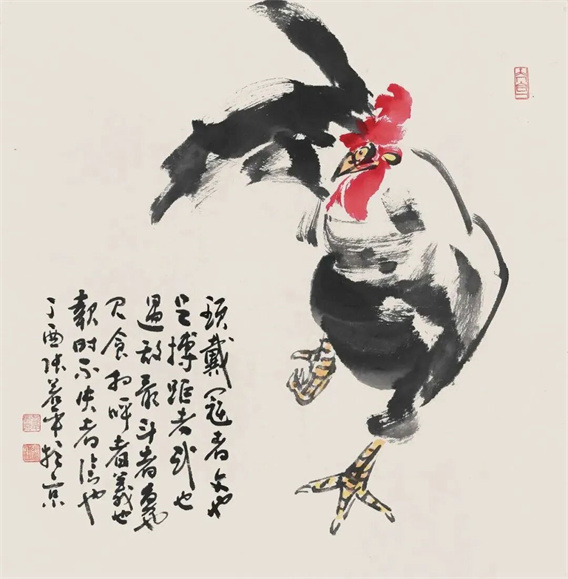 頭戴冠者文也
足搏距者武也
遇敌敢斗者勇
见食相呼者義也
報时不失者信也
丁酉平於京